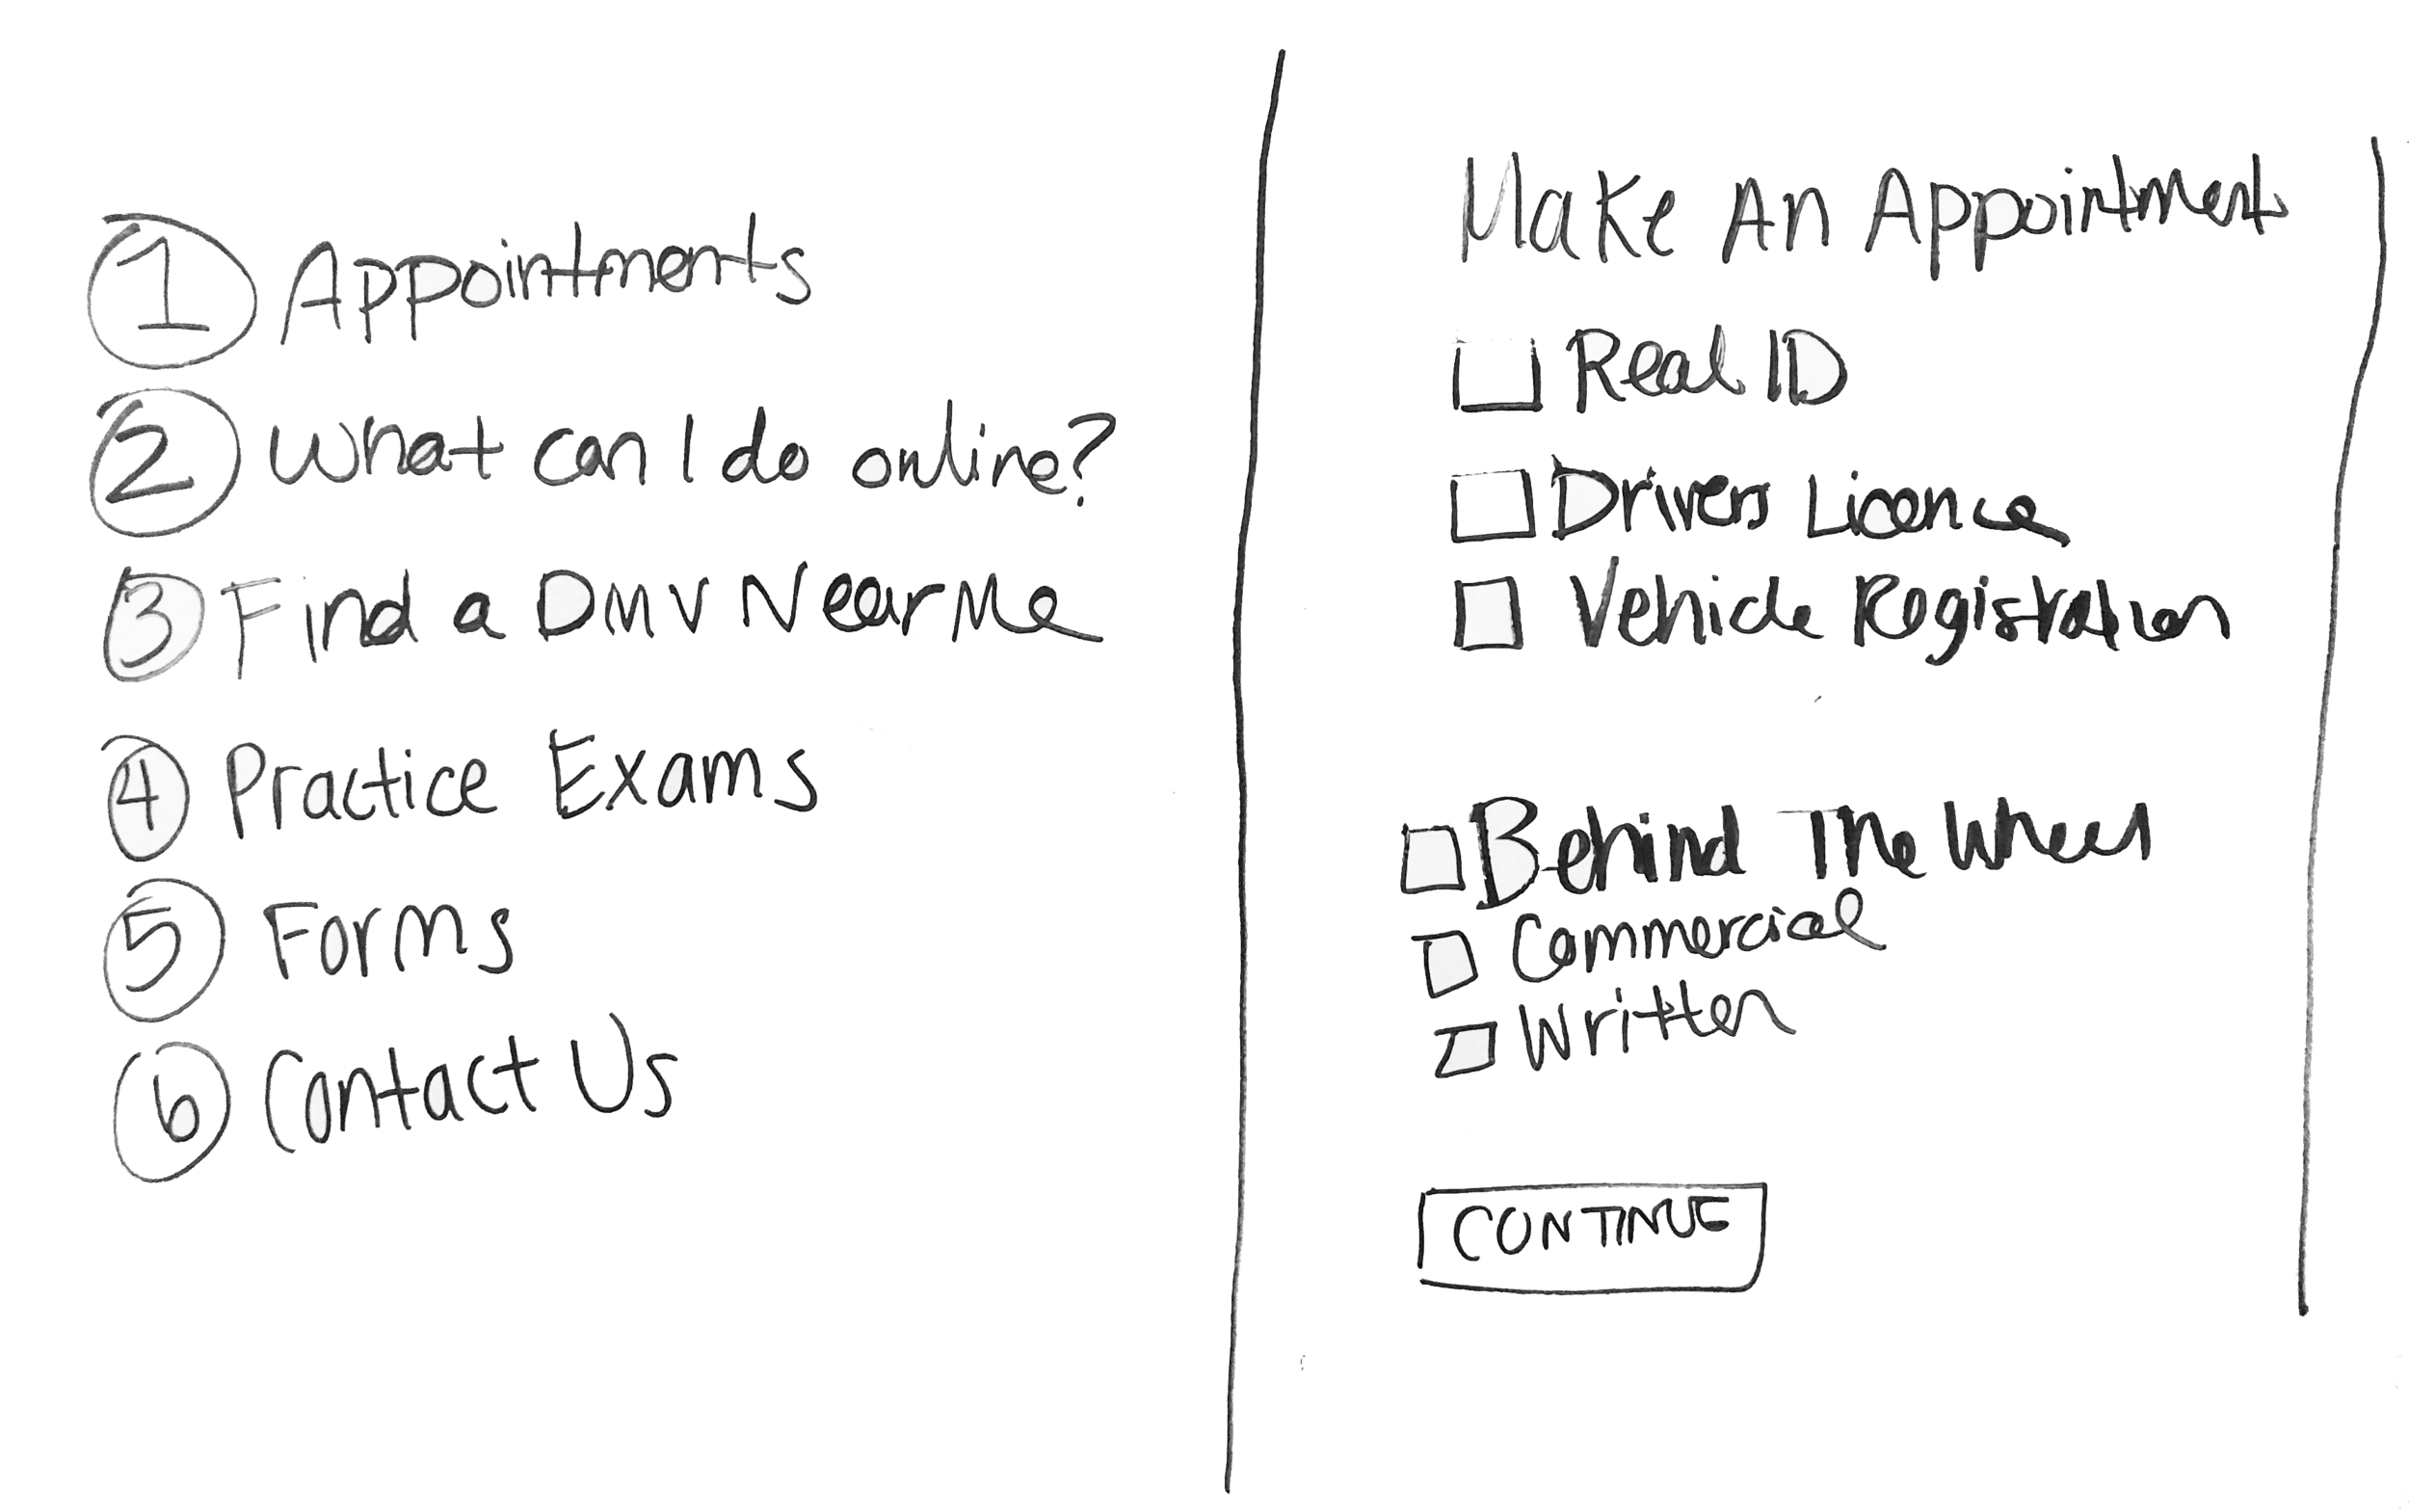 1 Appointments
2 What can I do online?
3 Find a DMV Near Me
4 Practice Exams
5 Forms
6 Contact Us
Make An Appointment
Real ID
Drivers Licence
Vehicle Registration
Behind The Wheel
Commercial
Written
CONTINUE